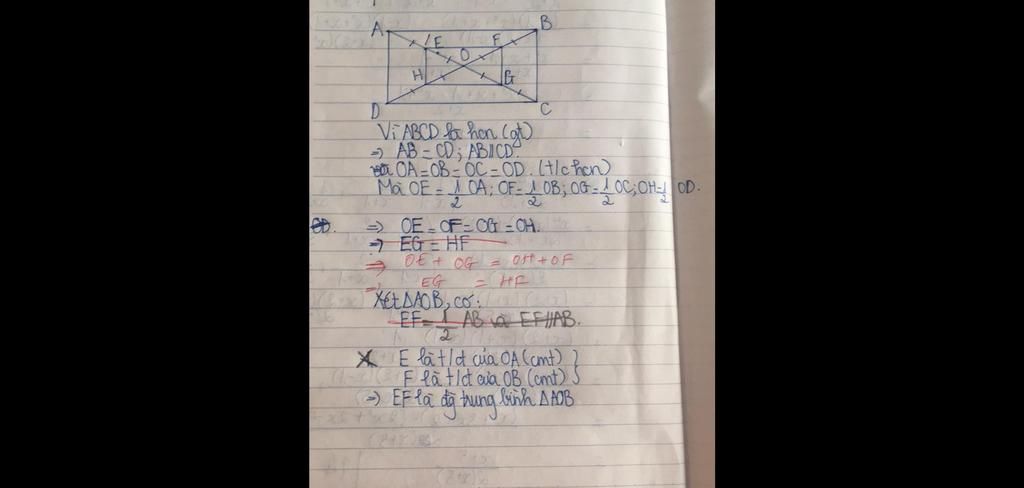 A B
E F
O
H G
D C
Vì ABCD là hcn (gt)
⇒ AB = CD; AB//CD.
và OA = OB = OC = OD. (t/c hcn)
Mà OE = 1/2 OA; OF = 1/2 OB; OG = 1/2 OC; OH = 1/2 OD.
⇒ OE = OF = OG = OH.
⇒ EG = HF
⇒ OE + OG = OH + OF
⇒ EG = HF
Xét ΔAOB, có:
EF = 1/2 AB và EF//AB.
E là t/đ của OA (cmt) }
F là t/đ của OB (cmt) }
⇒ EF là đg trung bình ΔAOB